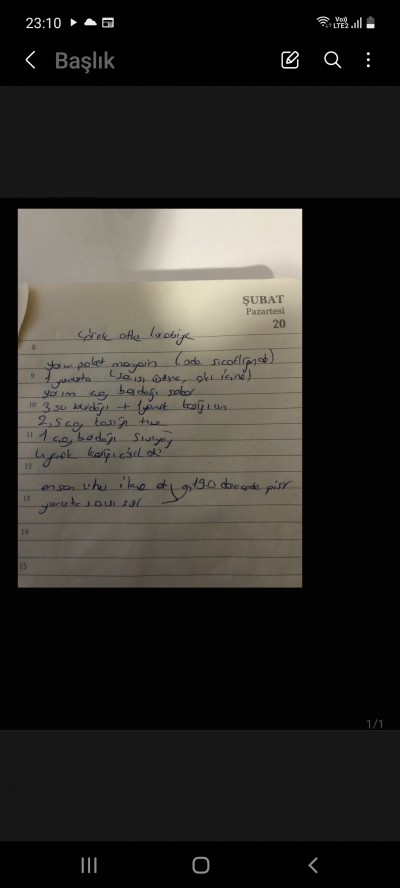 23:10
Vo))
LTE2
Başlık
ŞUBAT
Pazartesi
20
çörek otlu kurabiye
8
yarım paket margarin (oda sıcaklığında)
9 1 yumurta (sarısı üstüne, akı içine)
yarım çay bardağı
10 3 su bardağı + 1 yemek kaşığı un
2,5 çay kaşığı tuz
11 1 çay bardağı sıvıyağ
1 yemek kaşığı çörek otu
12
en son unu ilave et 190 derecede pişir
13 yumurta sarısı sür
14
15
1/1